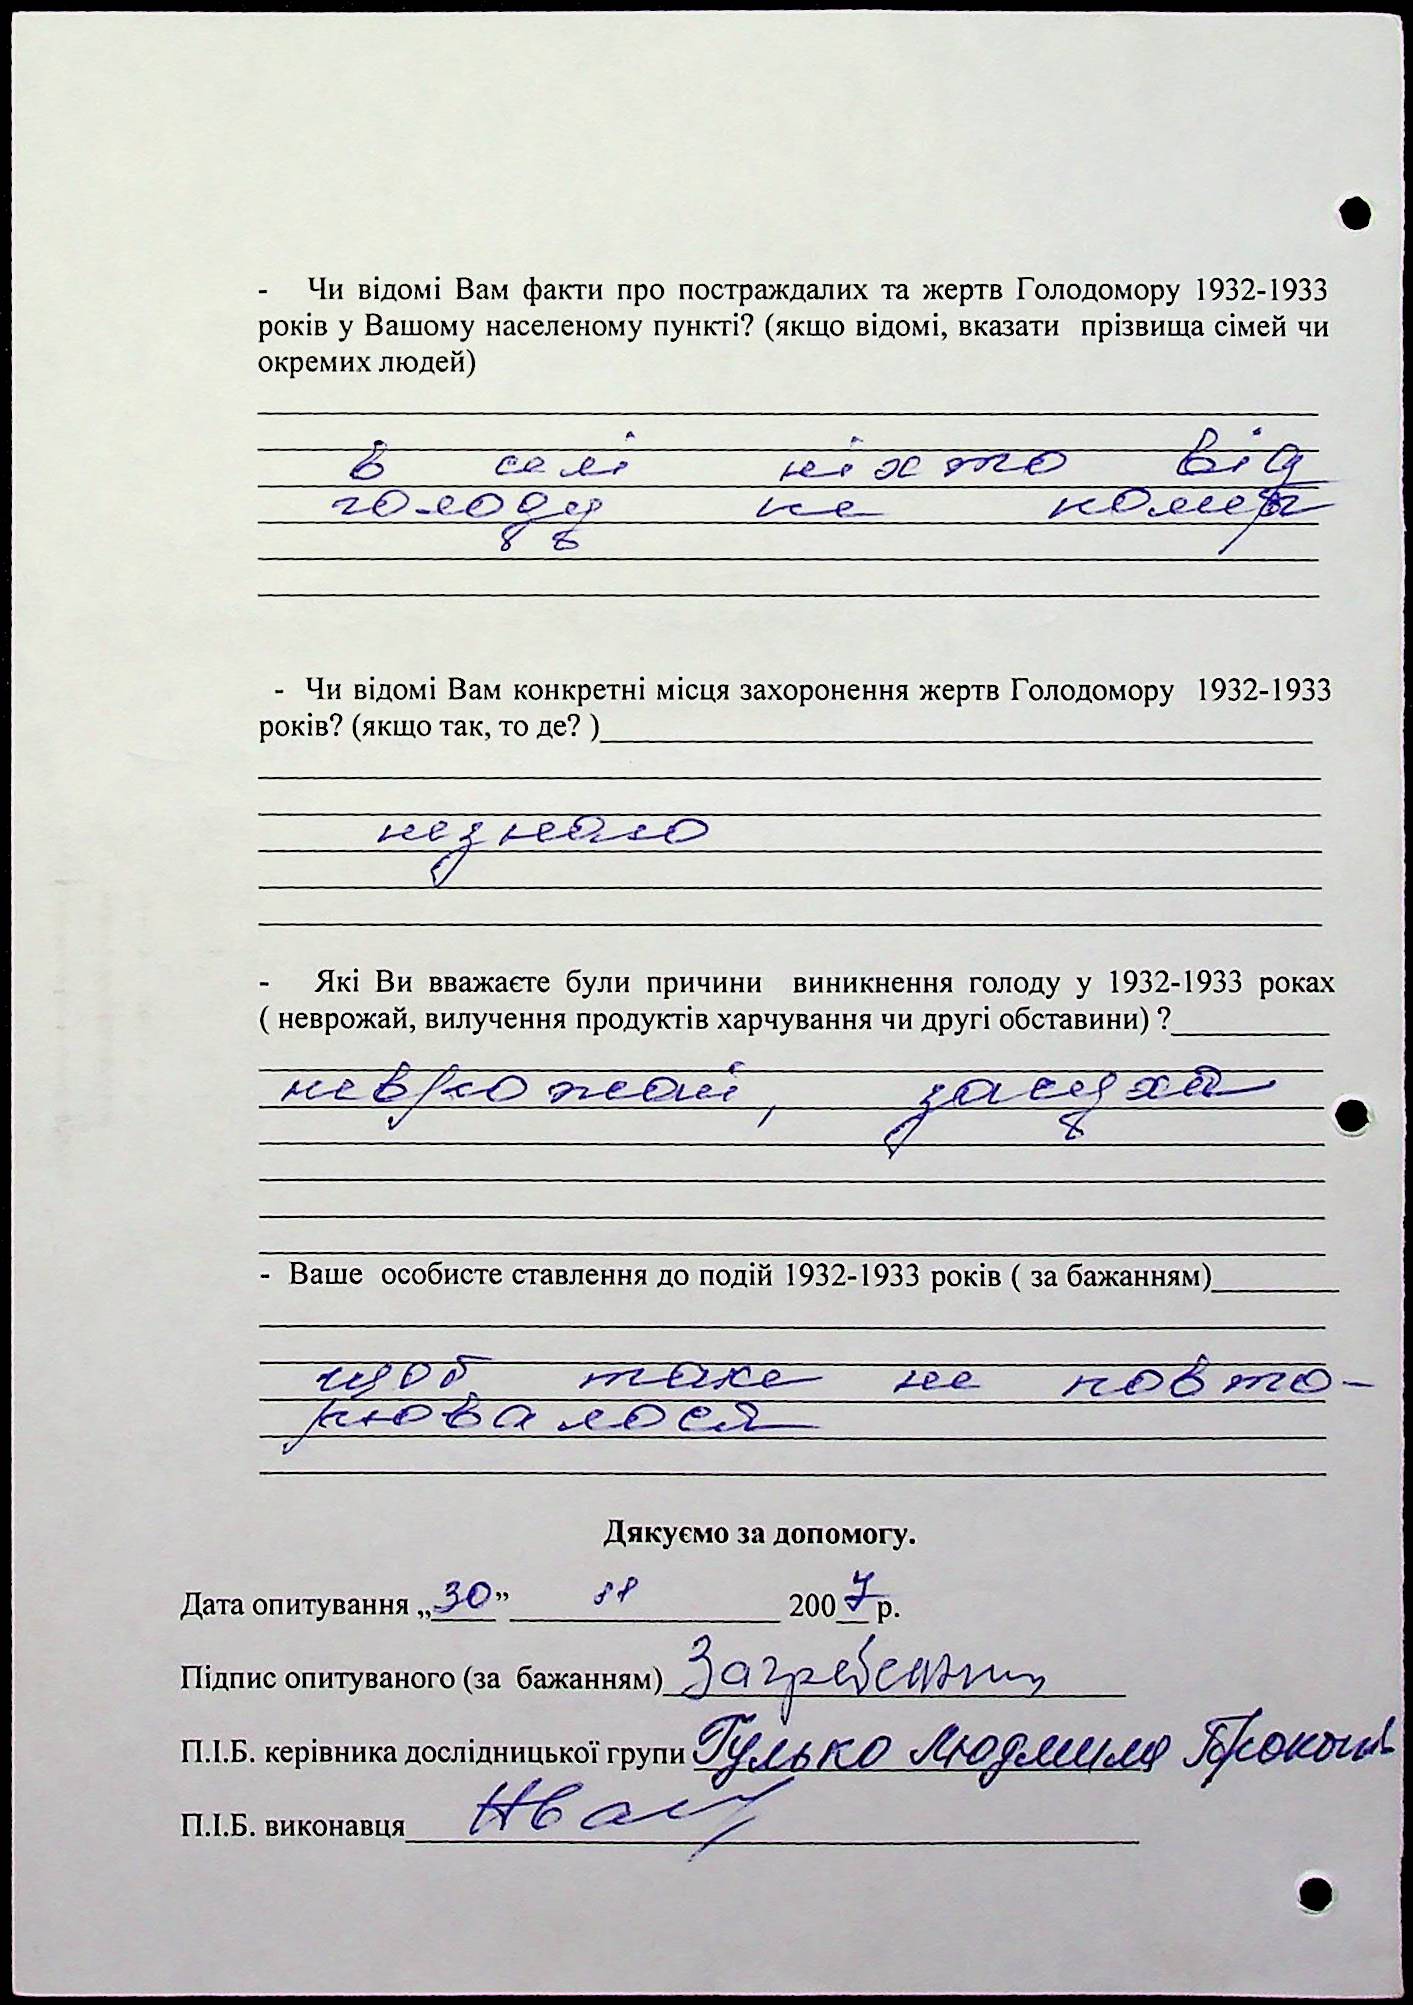 - Чи відомі Вам факти про постраждалих та жертв Голодомору 1932-1933
років у Вашому населеному пункті? (якщо відомі, вказати прізвища сімей чи
окремих людей)
в селі ніхто від
голоду не помер
- Чи відомі Вам конкретні місця захоронення жертв Голодомору 1932-1933
років? (якщо так, то де? )
незнаю
- Які Ви вважаєте були причини виникнення голоду у 1932-1933 роках
( неврожай, вилучення продуктів харчування чи другі обставини) ?
неврожай, засуха
- Ваше особисте ставлення до подій 1932-1933 років ( за бажанням)
щоб таке не повто-
рювалося
Дякуємо за допомогу.
Дата опитування „30” 11 2007 р.
Підпис опитуваного (за бажанням)
П.І.Б. керівника дослідницької групи Гулько Людмила
П.І.Б. виконавця